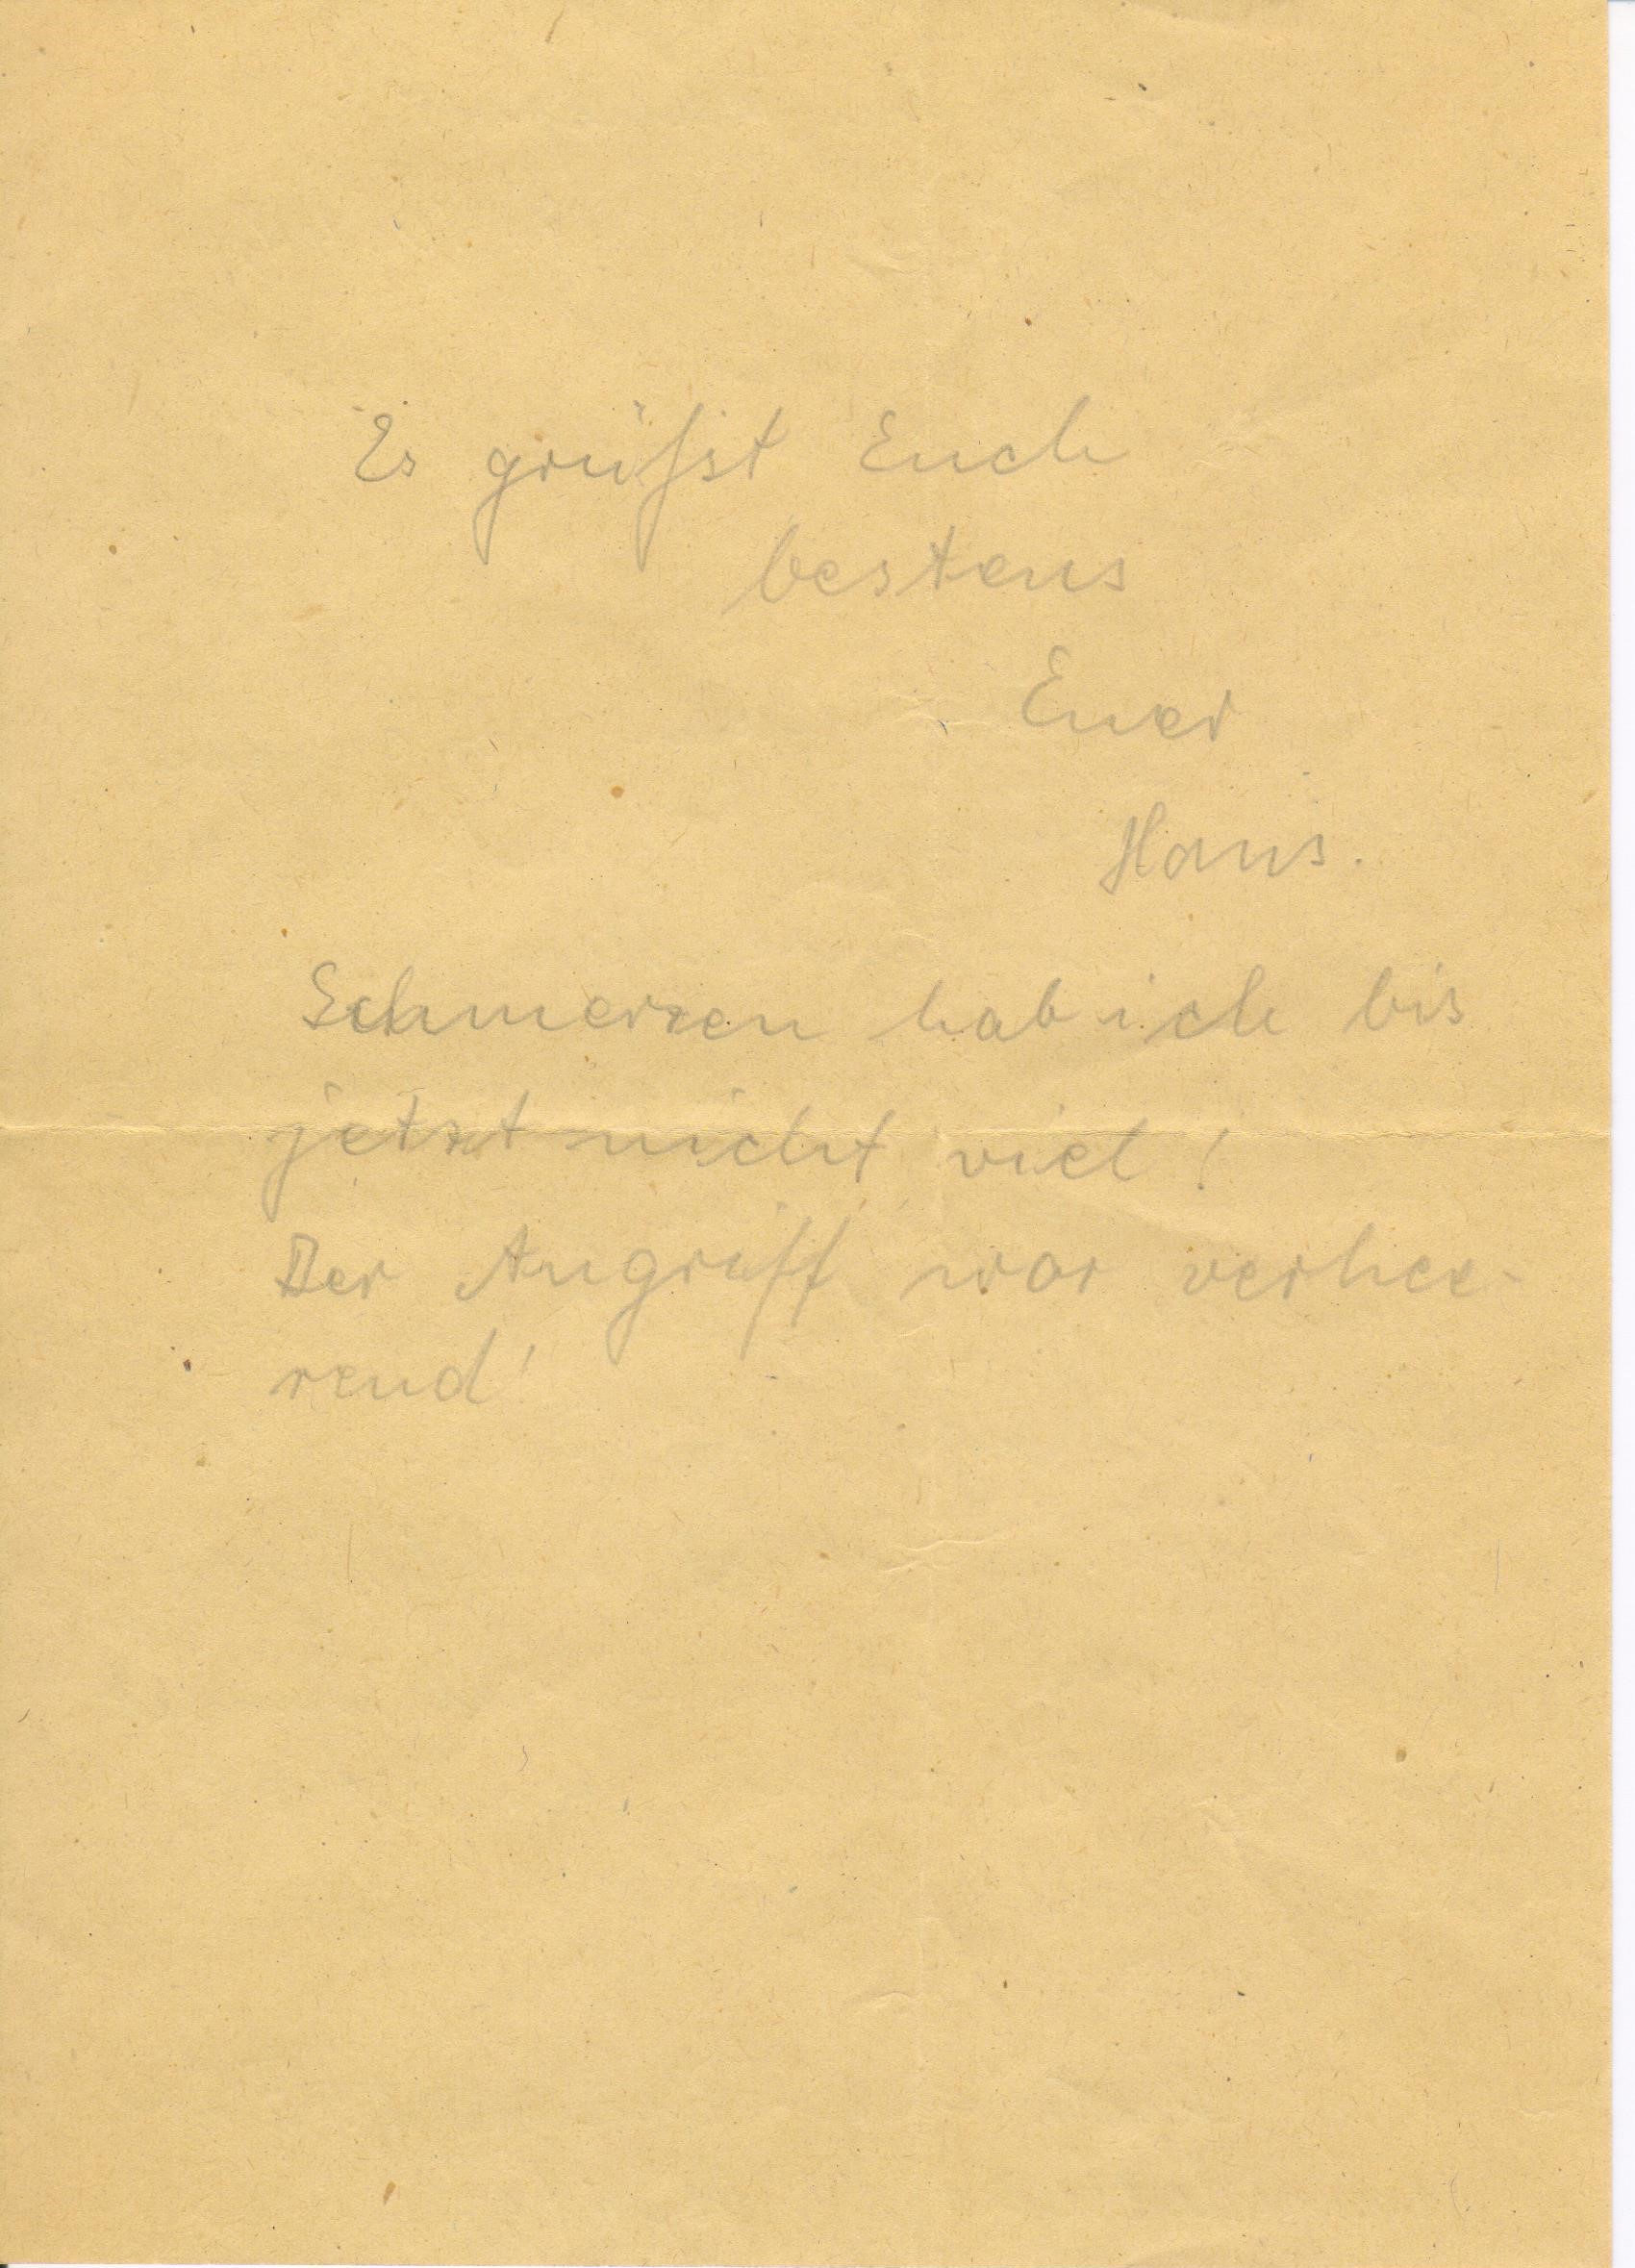 Es grüßst Euch
bestens
Euer
Hans.
Schmerzen hab ich bis
jetzt nicht viel!
Der Angriff war verhee-
rend!